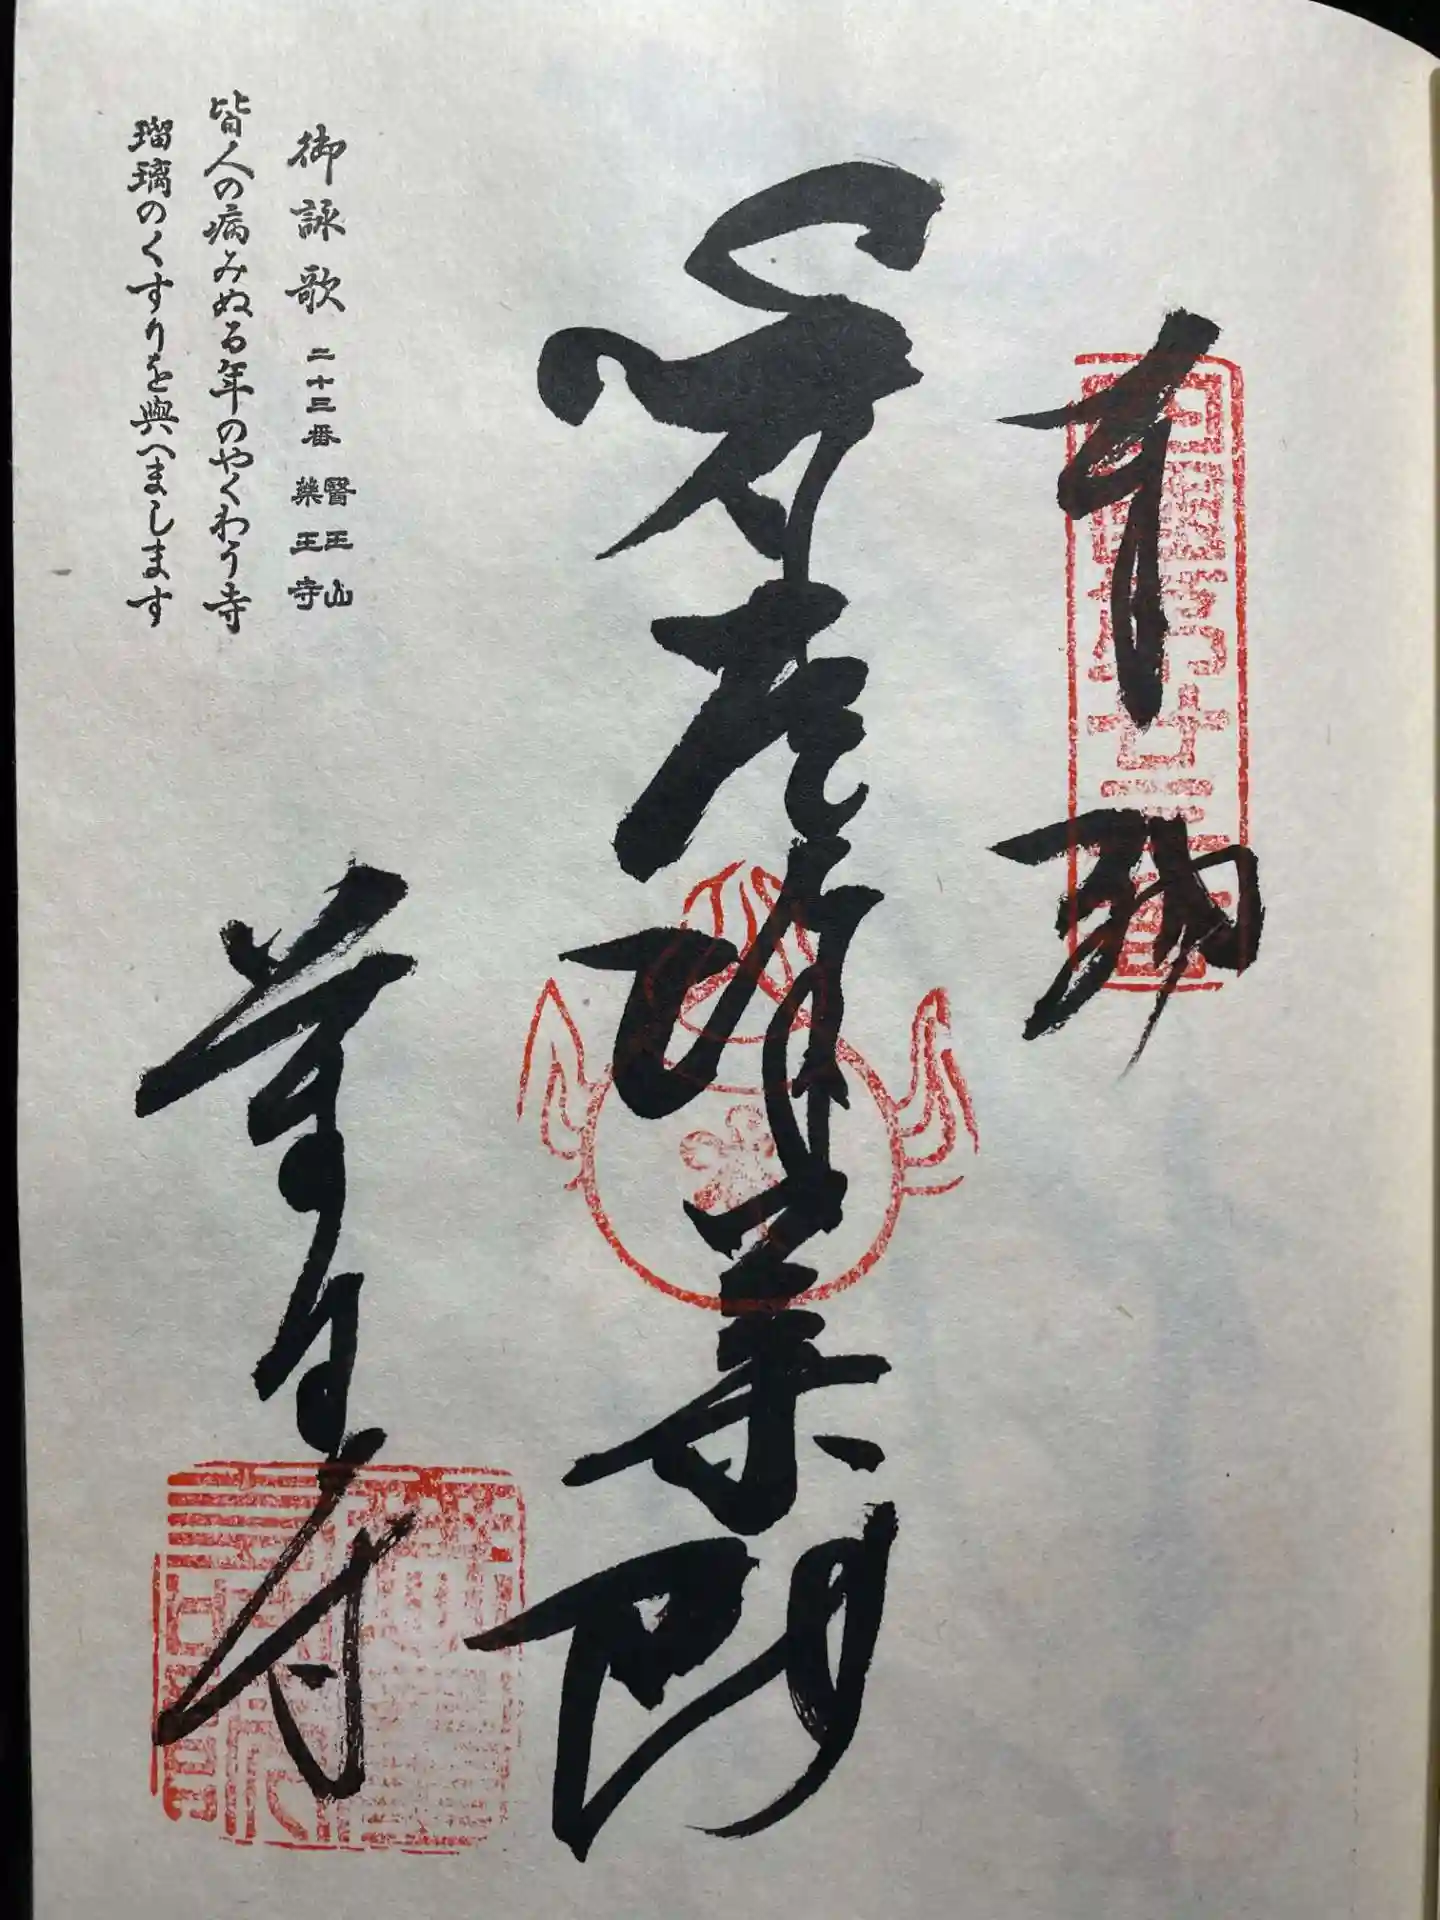 奉納
厄除薬師
御詠歌 二十三番 醫王山 藥王寺
皆人の病みぬる年のやくわう寺
瑠璃のくすりを與へまします
薬王寺